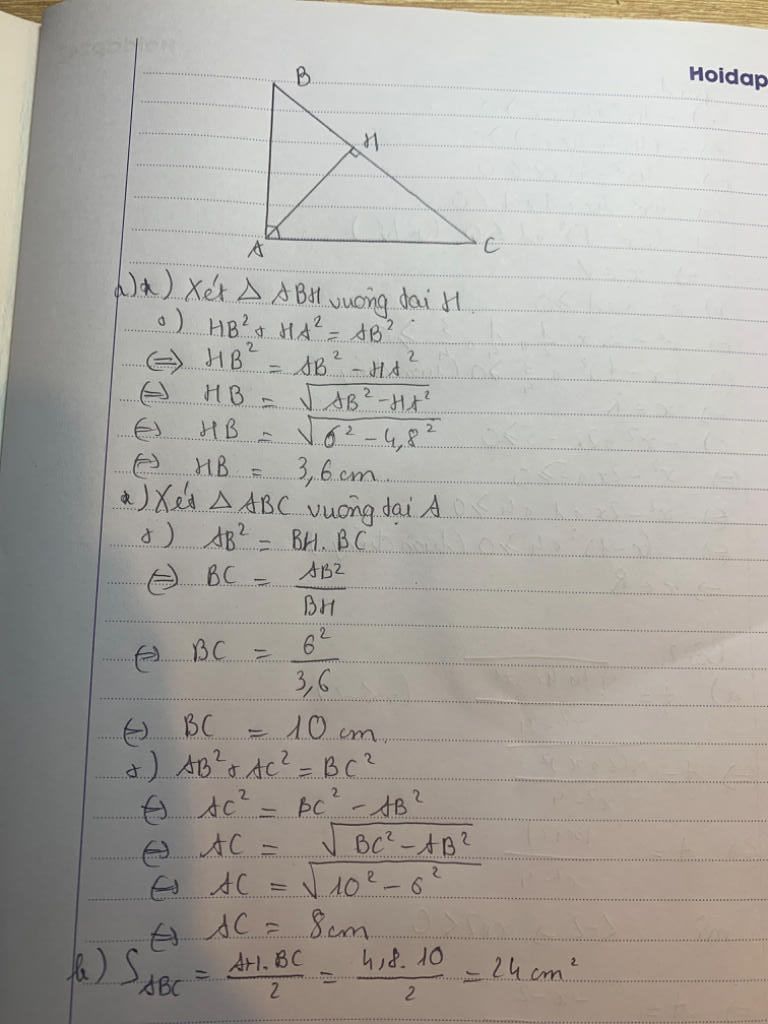 Hoidap
B
H
A
C
a) *) Xét Δ ABH vuông tại H
+) HB² + HA² = AB²
⇔ HB² = AB² - HA²
⇔ HB = √(AB² - HA²)
⇔ HB = √(6² - 4,8²)
⇔ HB = 3,6 cm.
*) Xét Δ ABC vuông tại A
+) AB² = BH. BC
⇔ BC = AB² / BH
⇔ BC = 6² / 3,6
⇔ BC = 10 cm.
+) AB² + AC² = BC²
⇔ AC² = BC² - AB²
⇔ AC = √(BC² - AB²)
⇔ AC = √(10² - 6²)
⇔ AC = 8cm
b) S_ABC = AH. BC / 2 = 4,8. 10 / 2 = 24 cm²